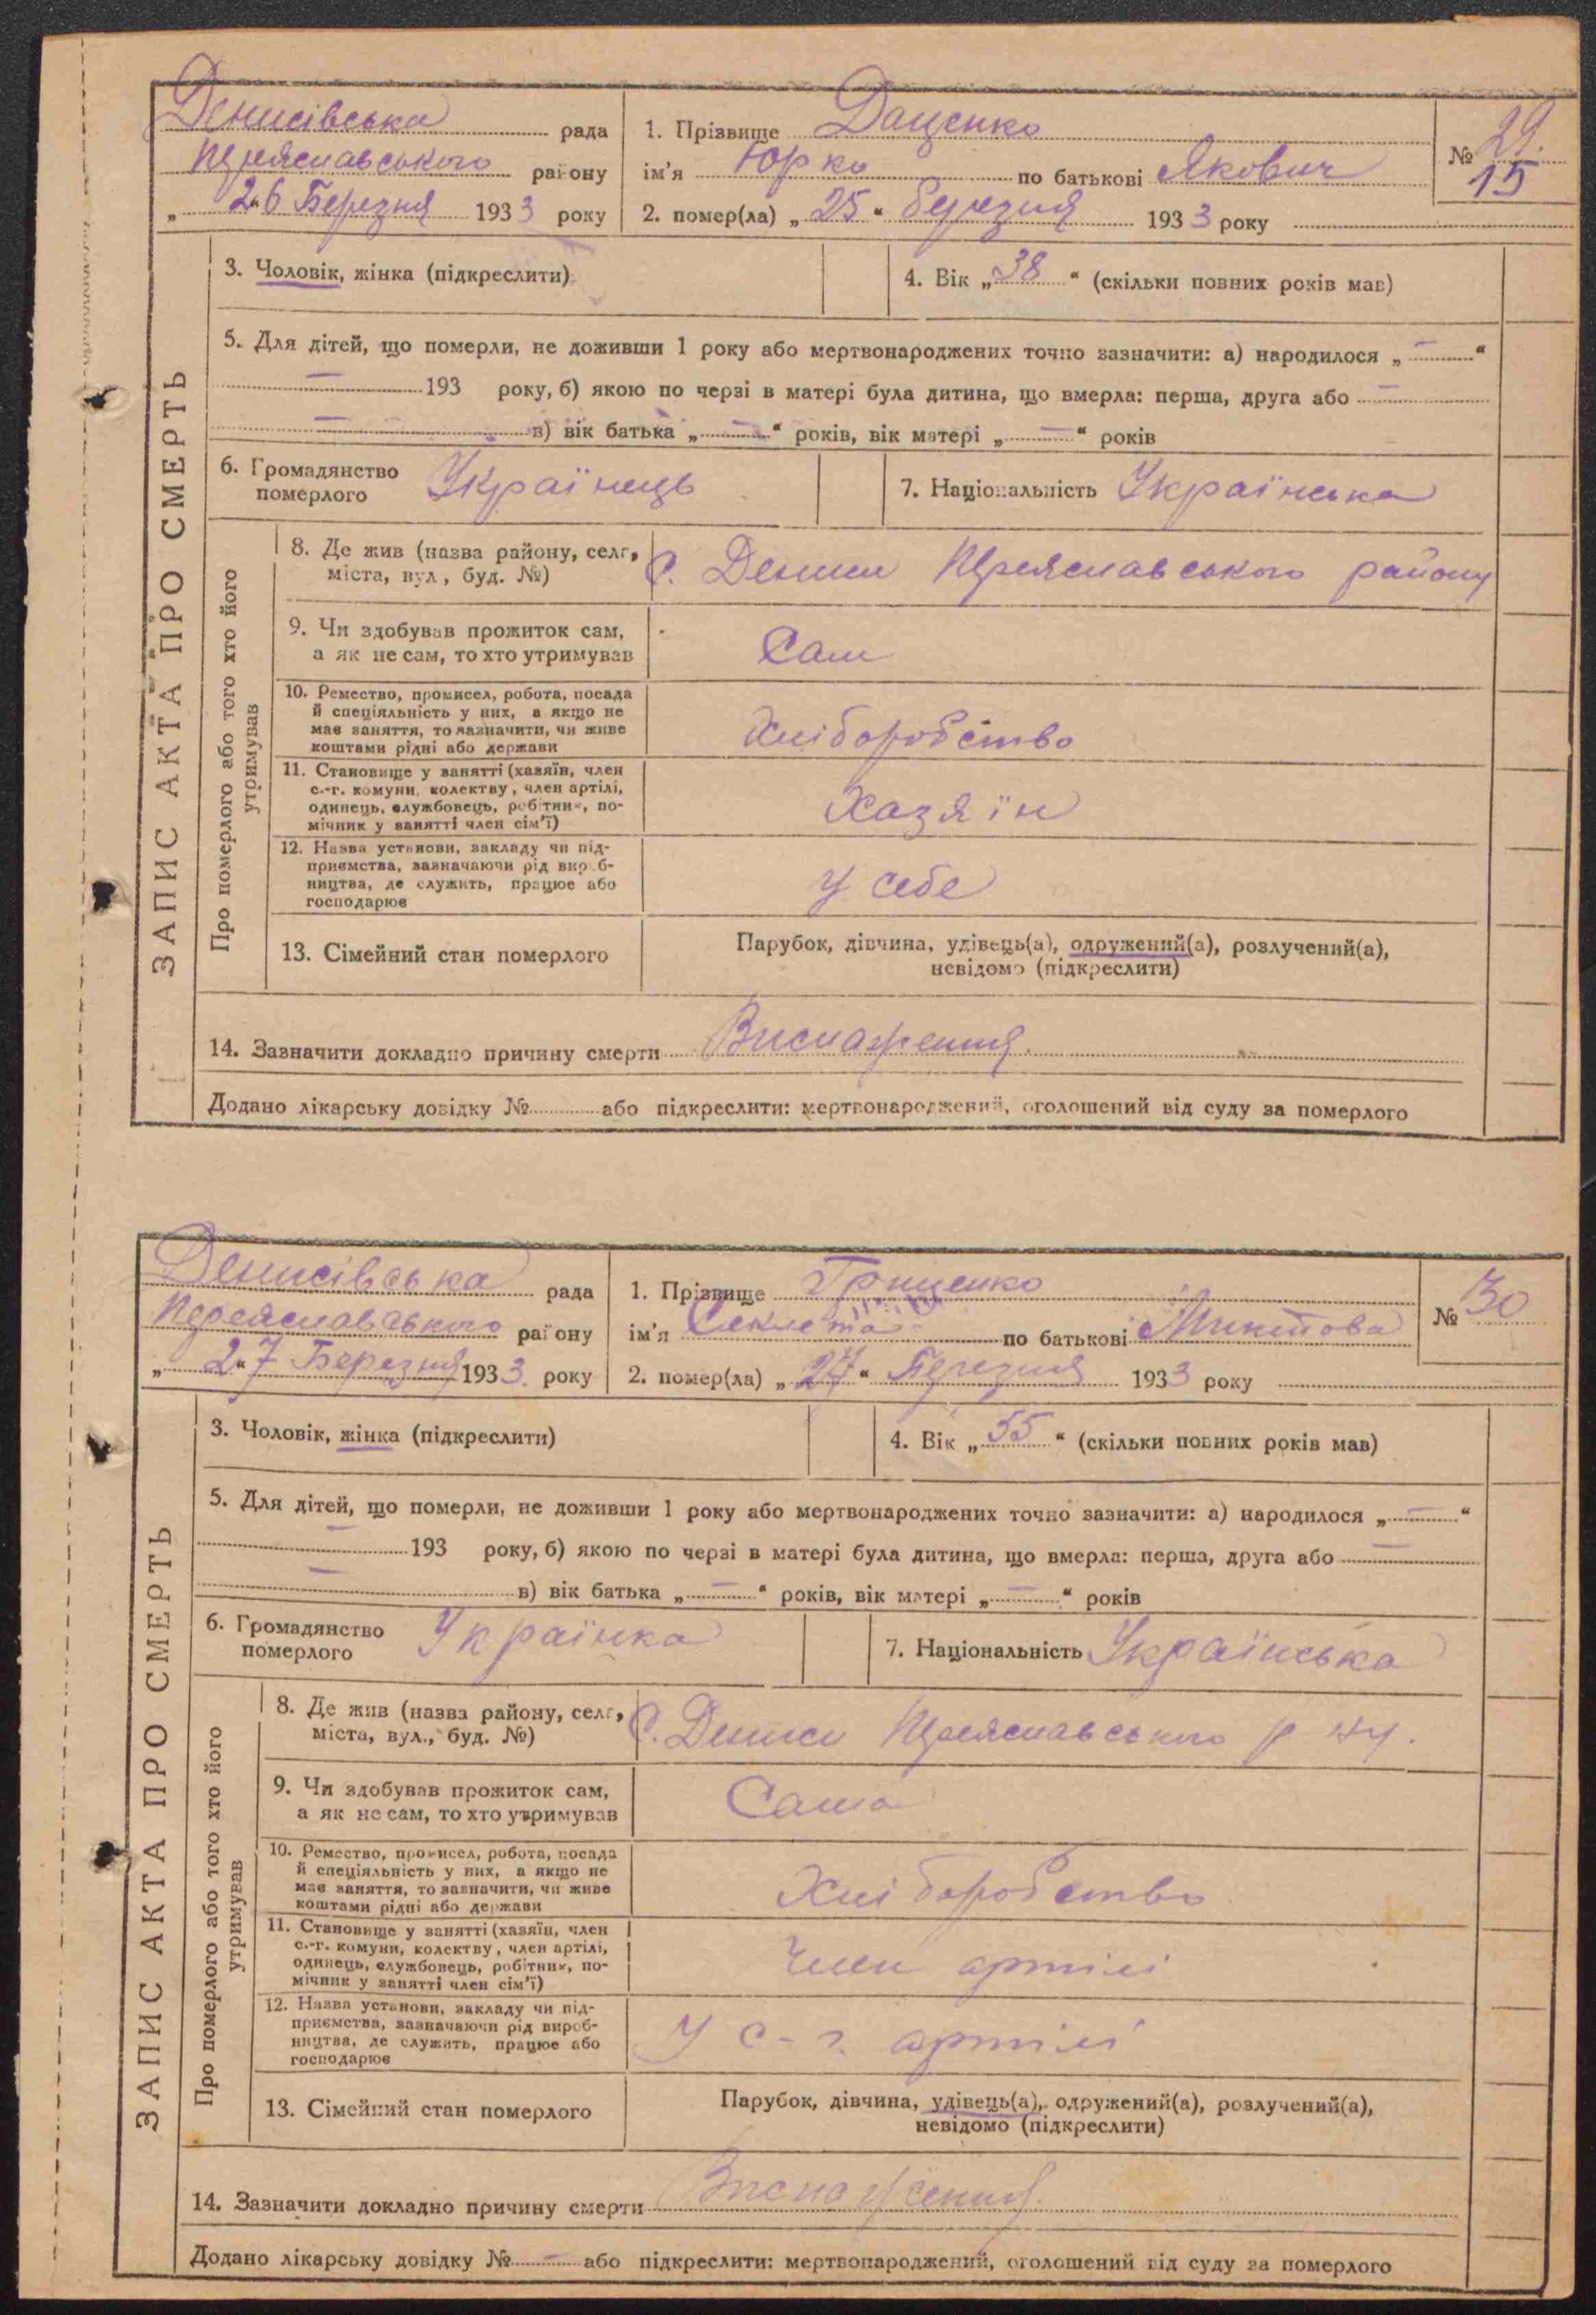 Денисівська рада
Переяславського району
„ 26 Березня 1933 року
1. Прізвище Даценко
ім'я Юрко по батькові Якович
2. помер(ла) „ 25 “ березня 1933 року
№ 29.
15
ЗАПИС АКТА ПРО СМЕРТЬ
3. Чоловік, жінка (підкреслити)
4. Вік „ 38 “ (скільки повних років мав)
5. Для дітей, що померли, не доживши 1 року або мертвонароджених точно зазначити: а) народилося „ — “
— 193 року, б) якою по черзі в матері була дитина, що вмерла: перша, друга або —
— в) вік батька „ — “ років, вік матері „ — “ років
6. Громадянство
померлого Українець
7. Національність Українська
Про померлого або того хто його
утримував
8. Де жив (назва району, села,
міста, вул, буд. №) с. Дениси Переяславського району
9. Чи здобував прожиток сам,
а як не сам, то хто утримував
Сам
10. Ремество, промисел, робота, посада
й спеціяльність у них, а якщо не
має заняття, то зазначити, чи живе
коштами рідні або держави
Хліборобство
11. Становище у занятті (хазяїн, член
с.-г. комуни, колектву, член артілі,
одинець, службовець, робітник, по-
мічник у занятті член сім'ї)
Хазяїн
12. Назва установи, закладу чи під-
приємства, зазначаючи рід вироб-
ництва, де служить, працює або
господарює
У себе
13. Сімейний стан померлого
Парубок, дівчина, удівець(а), одружений(а), розлучений(а),
невідомо (підкреслити)
14. Зазначити докладно причину смерти Виснаження
Додано лікарську довідку № або підкреслити: мертвонароджений, оголошений від суду за померлого
Денисівська рада
Переяславського району
„ 27 Березня 1933 року
1. Прізвище Гриценко
ім'я Секлета по батькові Микитова
2. помер(ла) „ 27 “ Березня 1933 року
№ 30
ЗАПИС АКТА ПРО СМЕРТЬ
3. Чоловік, жінка (підкреслити)
4. Вік „ 55 “ (скільки повних років мав)
5. Для дітей, що померли, не доживши 1 року або мертвонароджених точно зазначити: а) народилося „ — “
— 193 року, б) якою по черзі в матері була дитина, що вмерла: перша, друга або —
— в) вік батька „ — “ років, вік матері „ — “ років
6. Громадянство
померлого Українка
7. Національність Українська
Про померлого або того хто його
утримував
8. Де жив (назва району, села,
міста, вул., буд. №) с. Дениси Переяславського р-ну.
9. Чи здобував прожиток сам,
а як не сам, то хто утримував
Сама
10. Ремество, промисел, робота, посада
й спеціяльність у них, а якщо не
має заняття, то зазначити, чи живе
коштами рідні або держави
Хліборобство
11. Становище у занятті (хазяїн, член
с.-г. комуни, колектву, член артілі,
одинець, службовець, робітник, по-
мічник у занятті член сім'ї)
Член артілі
12. Назва установи, закладу чи під-
приємства, зазначаючи рід вироб-
ництва, де служить, працює або
господарює
У с-г. артілі
13. Сімейний стан померлого
Парубок, дівчина, удівець(а), одружений(а), розлучений(а),
невідомо (підкреслити)
14. Зазначити докладно причину смерти Виснаження.
Додано лікарську довідку № — або підкреслити: мертвонароджений, оголошений від суду за померлого